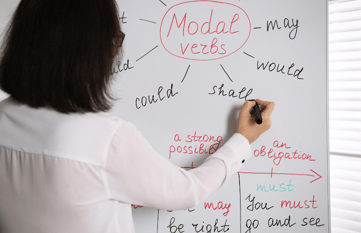 Modal
verbs
may
would
could
shall
a strong
an
obligation
must
may
You must
be right
go and see